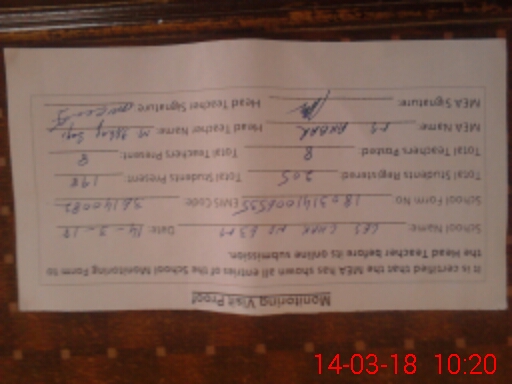 Monitoring Visit Proof
It is certified that the MEA has shown all entries of the School Monitoring Form to
the Head Teacher before its online submission.
School Name: CHAK NO 63 M Date: 14-3-18
School Form No 18031410065 EMIS Code:
Total Students Registered: 205 Total Students Present: 198
Total Teachers Posted: 8 Total Teachers Present: 8
MEA Name: AKBAR Head Teacher Name: M.
MEA Signature: Head Teacher Signature:
14-03-18 10:20